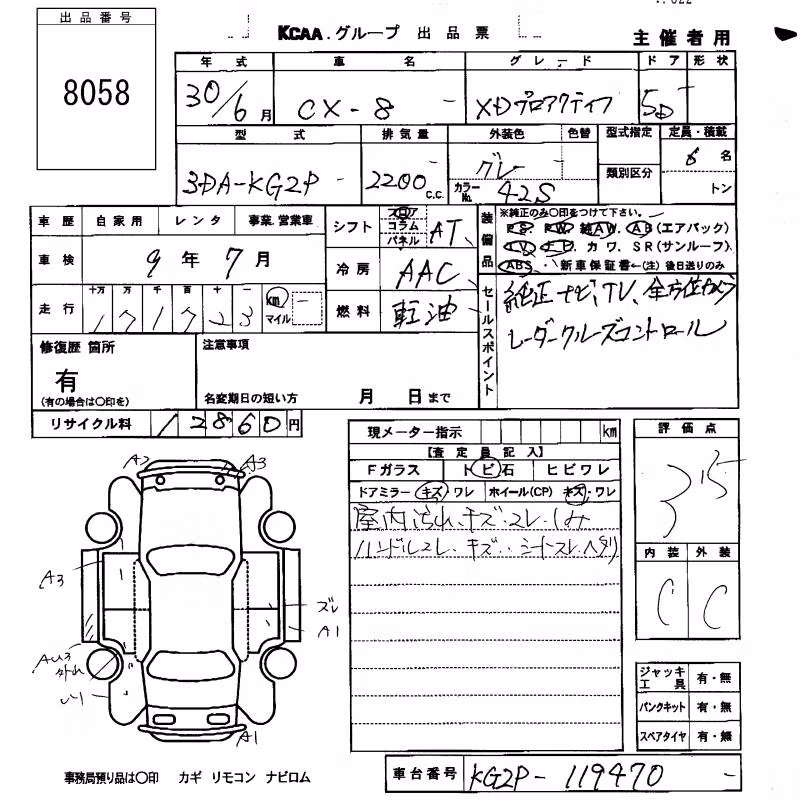 出品番号
8058
KCAA.グループ 出品票
主催者用
年式 車名 グレード ドア 形状
30/6月 CX-8 XDプロアクティブ 5D
型式 排気量 外装色 色替 型式指定 定員・積載
3DA-KG2P 2200 C.C. グレー カラーNo. 42S 類別区分 6名 トン
車歴 自家用 レンタ 事業.営業車
車検 9年7月
走行 十万 万 千 百 十 一
171723 km マイル
シフト フロア コラム パネル AT
冷房 AAC
燃料 軽油
装備品 ※純正のみ〇印をつけて下さい。
PS PW 純AW. AB(エアバック)
TV. ナビ カワ. SR(サンルーフ)
ABS 新車保証書←(注)後日送りのみ
セールスポイント
純正ナビ、TV、全方位カメラ
レーダークルーズコントロール
修復歴 箇所
有
(有の場合は〇印を)
注意事項
名変期日の短い方 月 日まで
リサイクル料 12860円
現メーター指示 km
【査定員記入】
Fガラス トビ石 ヒビワレ
ドアミラー キズ・ワレ ホイール(CP) キズ・ワレ
室内汚れ、キズ・スレ・しみ
ハンドルスレ・キズ・・シートスレ、ヘタリ
評価点
3.5
内装 外装
C C
A2 A3
A3
ズレ
A1
外れ
A1
ジャッキ工具 有・無
パンクキット 有・無
スペアタイヤ 有・無
事務局預り品は〇印 カギ リモコン ナビロム
車台番号 KG2P-119470